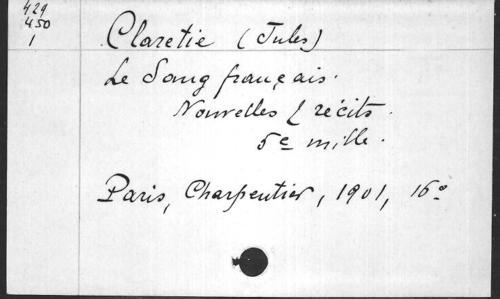 429
450
1
Claretie (Jules)
Le Sang français.
Nouvelles & récits.
5e mille.
Paris, Charpentier, 1901, 16º